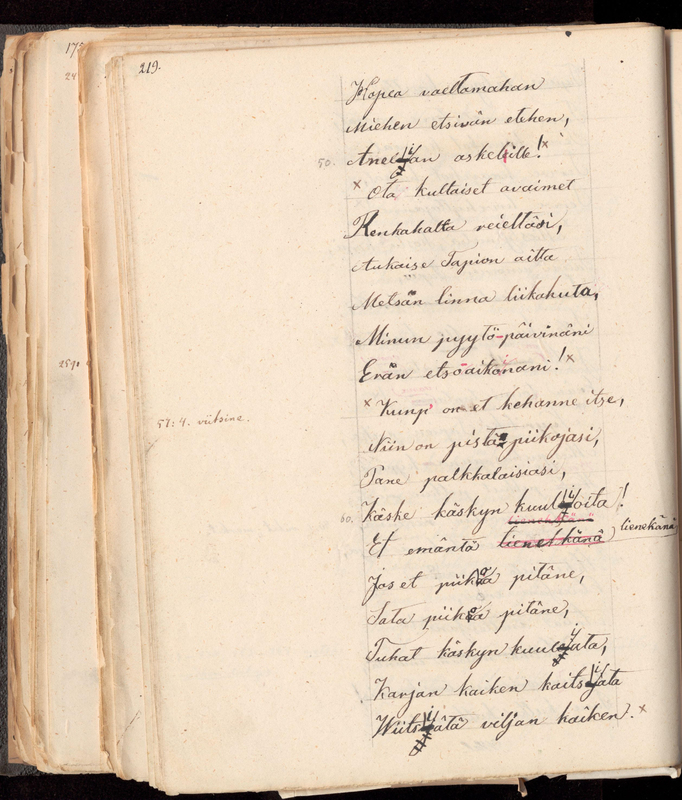 219.
Hopea vaeltamahan
Miehen etsivän etehen,
50. Anelijan askelille!
Ota kultaiset avaimet
Renkahalta reieltäsi,
Aukaise Tapion aitta
Metsän linna liikahuta,
Minun pyytö-päivinäni
Erän etsoaikonani!
Kunp' on et kehanne itse,
57: 4. viitsine.
Niin on pistä piikojasi,
Pane palkkalaisiasi,
60. Käske käskyn kuulijoita!
Et emäntä lienekänä
Jos et piikoa pitäne,
Sata piikoa pitäne,
Tuhat käskyn kuulijata,
Karjan kaiken kaitsijata
Wiitsijätä viljan kaiken.
175
259.